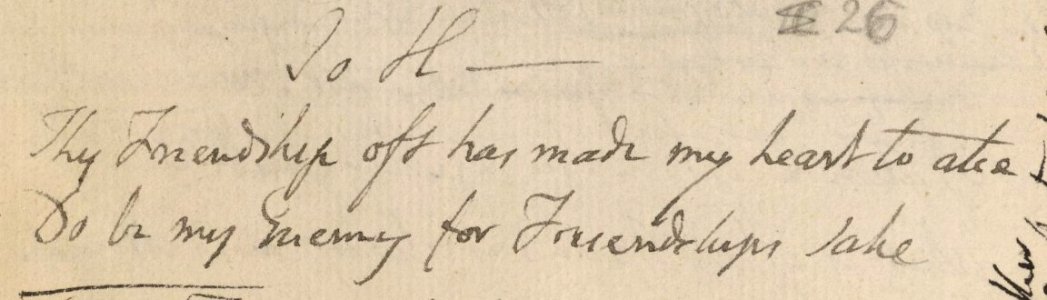 26
To H——
Thy Friendship oft has made my heart to ake
Do be my Enemy for Friendships sake